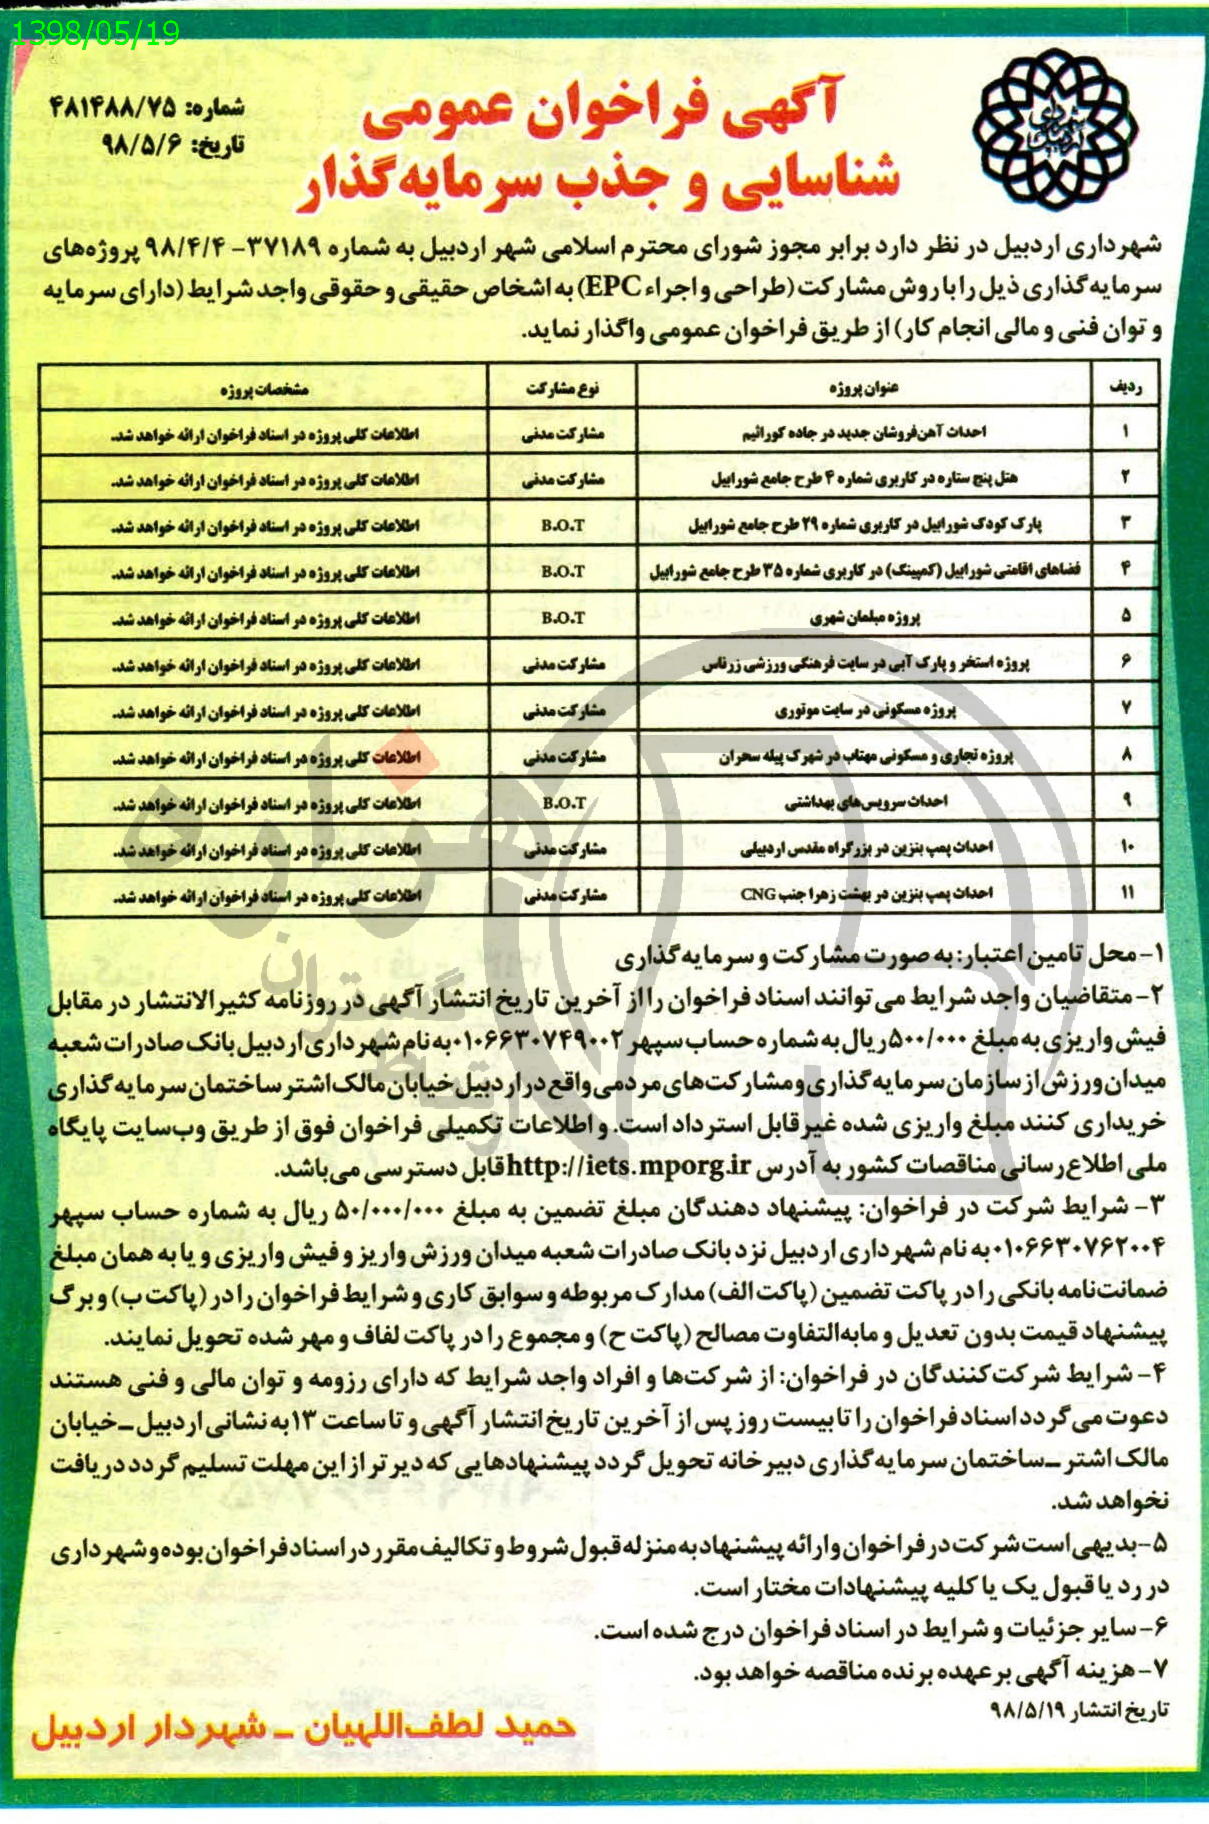 1398/05/19
آگهی فراخوان عمومی
شناسایی و جذب سرمایه‌گذار
شماره: ۴۸۱۴۸۸/۷۵
تاریخ: ۹۸/۵/۶
شهرداری اردبیل در نظر دارد برابر مجوز شورای محترم اسلامی شهر اردبیل به شماره ۳۷۱۸۹- ۹۸/۴/۴ پروژه‌های
سرمایه‌گذاری ذیل را با روش مشارکت (طراحی و اجراء EPC) به اشخاص حقیقی و حقوقی واجد شرایط (دارای سرمایه
و توان فنی و مالی انجام کار) از طریق فراخوان عمومی واگذار نماید.
ردیف عنوان پروژه نوع مشارکت مشخصات پروژه
۱ احداث آهن‌فروشان جدید در جاده کورائیم مشارکت مدنی اطلاعات کلی پروژه در اسناد فراخوان ارائه خواهد شد.
۲ هتل پنج ستاره در کاربری شماره ۴ طرح جامع شورابیل مشارکت مدنی اطلاعات کلی پروژه در اسناد فراخوان ارائه خواهد شد.
۳ پارک کودک شورابیل در کاربری شماره ۲۹ طرح جامع شورابیل B.O.T اطلاعات کلی پروژه در اسناد فراخوان ارائه خواهد شد.
۴ فضاهای اقامتی شورابیل (کمپینگ) در کاربری شماره ۳۵ طرح جامع شورابیل B.O.T اطلاعات کلی پروژه در اسناد فراخوان ارائه خواهد شد.
۵ پروژه مبلمان شهری B.O.T اطلاعات کلی پروژه در اسناد فراخوان ارائه خواهد شد.
۶ پروژه استخر و پارک آبی در سایت فرهنگی ورزشی زرناس مشارکت مدنی اطلاعات کلی پروژه در اسناد فراخوان ارائه خواهد شد.
۷ پروژه مسکونی در سایت موتوری مشارکت مدنی اطلاعات کلی پروژه در اسناد فراخوان ارائه خواهد شد.
۸ پروژه تجاری و مسکونی مهتاب در شهرک پیله سحران مشارکت مدنی اطلاعات کلی پروژه در اسناد فراخوان ارائه خواهد شد.
۹ احداث سرویس‌های بهداشتی B.O.T اطلاعات کلی پروژه در اسناد فراخوان ارائه خواهد شد.
۱۰ احداث پمپ بنزین در بزرگراه مقدس اردبیلی مشارکت مدنی اطلاعات کلی پروژه در اسناد فراخوان ارائه خواهد شد.
۱۱ احداث پمپ بنزین در بهشت زهرا جنب CNG مشارکت مدنی اطلاعات کلی پروژه در اسناد فراخوان ارائه خواهد شد.
۱- محل تامین اعتبار: به صورت مشارکت و سرمایه‌گذاری
۲- متقاضیان واجد شرایط می‌توانند اسناد فراخوان را از آخرین تاریخ انتشار آگهی در روزنامه کثیرالانتشار در مقابل
فیش واریزی به مبلغ ۵۰۰/۰۰۰ ریال به شماره حساب سپهر ۰۱۰۶۶۳۰۷۴۹۰۰۲ به نام شهرداری اردبیل بانک صادرات شعبه
میدان ورزش از سازمان سرمایه‌گذاری و مشارکت‌های مردمی واقع در اردبیل خیابان مالک اشتر ساختمان سرمایه‌گذاری
خریداری کنند مبلغ واریزی شده غیرقابل استرداد است. و اطلاعات تکمیلی فراخوان فوق از طریق وب‌سایت پایگاه
ملی اطلاع‌رسانی مناقصات کشور به آدرس http://iets.mporg.ir قابل دسترسی می‌باشد.
۳- شرایط شرکت در فراخوان: پیشنهاد دهندگان مبلغ تضمین به مبلغ ۵۰/۰۰۰/۰۰۰ ریال به شماره حساب سپهر
۰۱۰۶۶۳۰۷۶۲۰۰۴ به نام شهرداری اردبیل نزد بانک صادرات شعبه میدان ورزش واریز و فیش واریزی و یا به همان مبلغ
ضمانت‌نامه بانکی را در پاکت تضمین (پاکت الف) مدارک مربوطه و سوابق کاری و شرایط فراخوان را در (پاکت ب) و برگ
پیشنهاد قیمت بدون تعدیل و مابه‌التفاوت مصالح (پاکت ج) و مجموع را در پاکت لفاف و مهر شده تحویل نمایند.
۴- شرایط شرکت‌کنندگان در فراخوان: از شرکت‌ها و افراد واجد شرایط که دارای رزومه و توان مالی و فنی هستند
دعوت می‌گردد اسناد فراخوان را تا بیست روز پس از آخرین تاریخ انتشار آگهی و تا ساعت ۱۳ به نشانی اردبیل ـ خیابان
مالک اشتر ـ ساختمان سرمایه‌گذاری دبیرخانه تحویل گردد پیشنهادهایی که دیرتر از این مهلت تسلیم گردد دریافت
نخواهد شد.
۵- بدیهی است شرکت در فراخوان و ارائه پیشنهاد به منزله قبول شروط و تکالیف مقرر در اسناد فراخوان بوده و شهرداری
در رد یا قبول یک یا کلیه پیشنهادات مختار است.
۶- سایر جزئیات و شرایط در اسناد فراخوان درج شده است.
۷- هزینه آگهی بر عهده برنده مناقصه خواهد بود.
تاریخ انتشار ۹۸/۵/۱۹
حمید لطف‌اللهیان ـ شهردار اردبیل